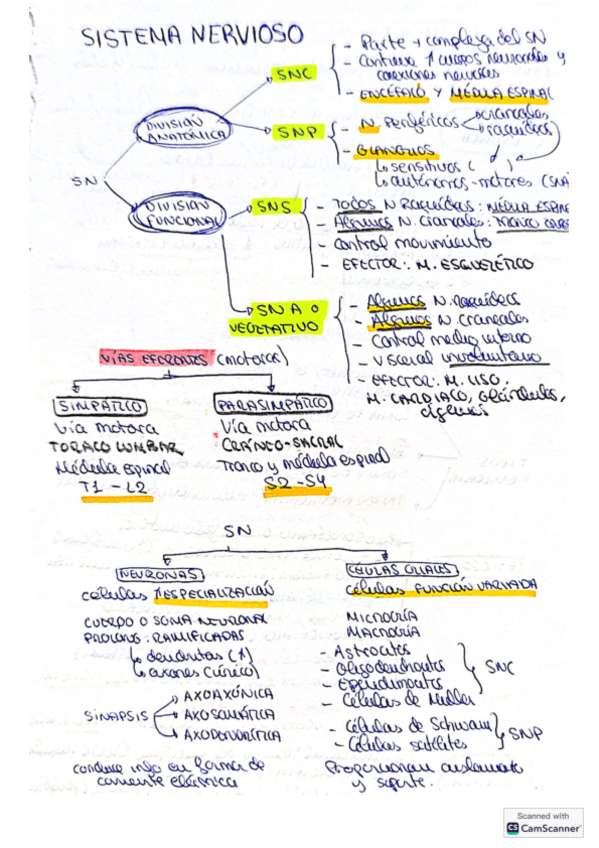 SISTEMA NERVIOSO
SN
DIVISIÓN ANATÓMICA
SNC
- Parte + compleja del SN
- Contiene ↑ cuerpos neuronales y
conexiones neuronales
- ENCÉFALO Y MÉDULA ESPINAL
SNP
- N. Periféricos
craneales
raquídeos
- GANGLIOS
sensitivos
autónomos-motores (SNA
DIVISIÓN FUNCIONAL
SNS
- Todos N. Raquídeos: MÉDULA ESPIN
- Algunos N. Craneales:
- Control movimiento
- EFECTOR: M. ESQUELÉTICO
SNA O
VEGETATIVO
- Algunos N. raquídeos
- Algunos N. craneales
- Control medio interno
- Visceral involuntario
- EFECTOR: M. LISO,
M. CARDIACO, Glándulas,
VÍAS EFERENTES (motoras)
SIMPÁTICO
Vía motora
TORACO LUMBAR
Médula espinal
T1 - L2
PARASIMPÁTICO
Vía motora
CRÁNEO-SACRAL
Tronco y médula espinal
S2 - S4
SN
NEURONAS
células ↑ESPECIALIZACIÓN
CUERPO O SOMA NEURONAL
PROLONG. RAMIFICADAS
dendritas (↑)
axones (único)
SINAPSIS
AXOAXÓNICA
AXOSOMÁTICA
AXODENDRÍTICA
conduce info en forma de
corriente eléctrica
CÉLULAS GLIALES
células FUNCIÓN VARIADA
MICROGLÍA
MACROGLÍA
- Astrocitos
- Oligodendrocitos
- Ependimocitos
- Células de Müller
SNC
- Células de Schwann
- Células satélites
SNP
Proporcionan aislamiento
y soporte.
Scanned with
CS CamScanner